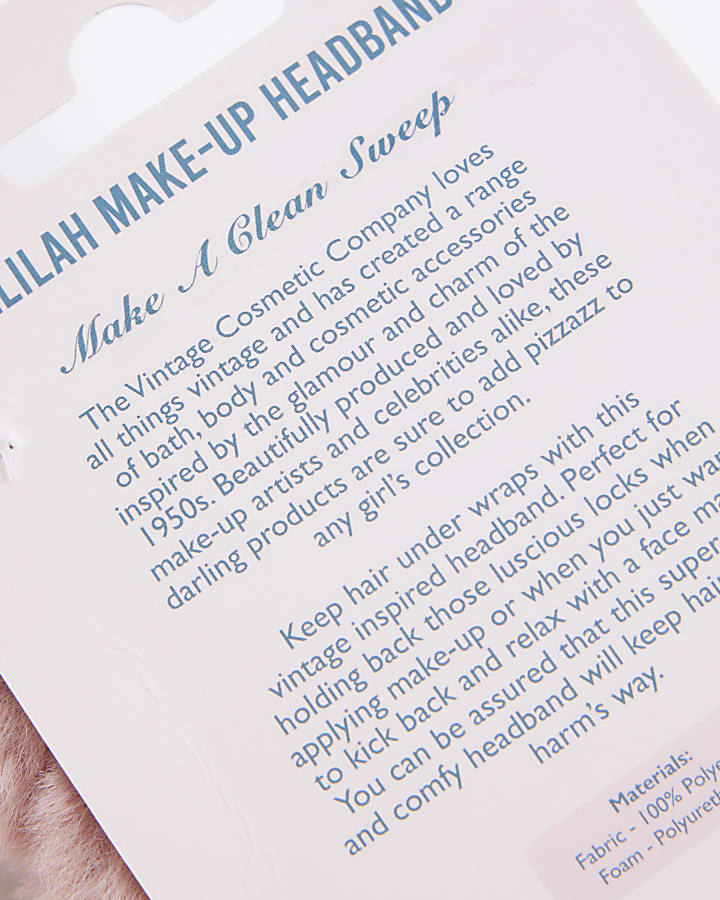 LILAH MAKE-UP HEADBAND
Make A Clean Sweep
The Vintage Cosmetic Company loves
all things vintage and has created a range
of bath, body and cosmetic accessories
inspired by the glamour and charm of the
1950s. Beautifully produced and loved by
make-up artists and celebrities alike, these
darling products are sure to add pizzazz to
any girl's collection.
Keep hair under wraps with this
vintage inspired headband. Perfect for
holding back those luscious locks when
applying make-up or when you just
to kick back and relax with a face
You can be assured that this super
and comfy headband will keep hair
harm's way.
Materials:
Fabric - 100%
Foam -